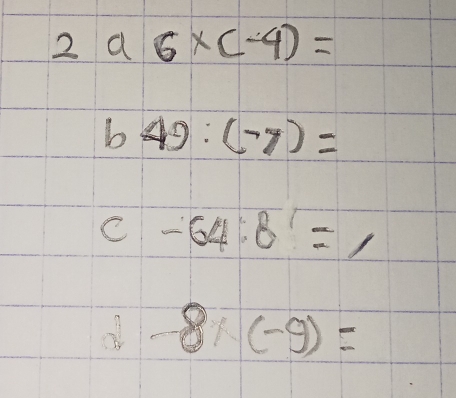 2 a 6 × (-4) =
b 49 : (-7) =
c -64 : 8 =
d -8 × (-9) =